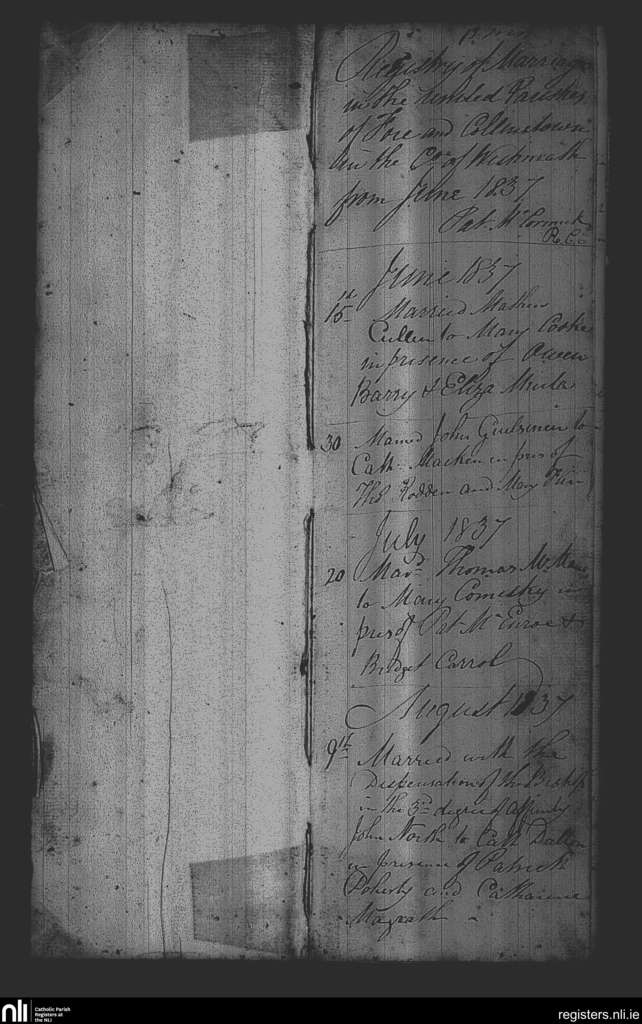 Registry of Marriages
in the United Parishes
of Fore and Collinstown
in the Co. of Westmeath
from June 1837
Pat. McCormick
R.C.C.
June 1837
15th Married Mathew
Cullen to Mary Cooke
in presence of Owen
Barry & Eliza
30 Married John to
Cath. Macken in pres of
Thos Rodden and Mary
July 1837
20 Mard. Thomas
to Mary Comesky in
pres of Pat McEnroe &
Bridget Carrol
August 1837
9th Married with the
Dispensation of the Bishop
in the 3rd degree of affinity
John North to Cath Dalton
in presence of Patrick
Doherty and Catharine
Magrath
nli
Catholic Parish
Registers at
the NLI
registers.nli.ie